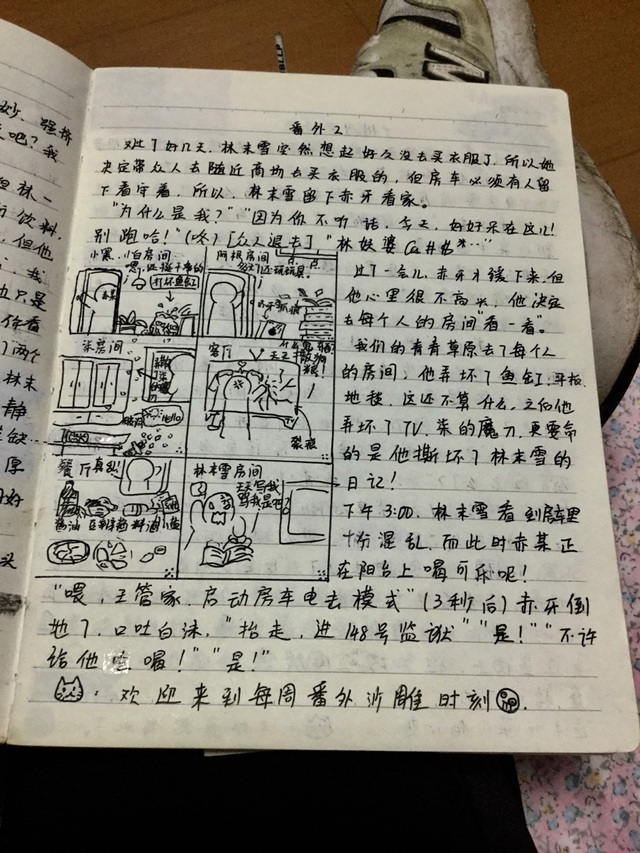 番外2
又过了好几天，林未雪突然想起好久没去买衣服了，所以她
决定带众人去随近商场去买衣服的，但房车必须有人留
下看守着，所以，林未雪留下赤牙看家。
"为什么是我？""因为你不听话，今天，好好呆在这儿！
别跑哈！"(咚)[众人退去]"林妖婆
过了一会儿，赤牙才缓下来，但
他心里很不高兴，他决定
去每个人的房间"看一看"。
我们的青青草原去了每个人
的房间，他弄坏了鱼缸，平板，
地毯，这还不算什么，之后他
弄坏了TV，柒的魔刀，更要命
的是他撕坏了林未雪的
日记！
下午3:00，林未雪看到房车里
十分混乱，而此时赤某正
在阳台上喝可乐呢！
小黑，小白房间
打坏鱼缸
阿根房间
柒房间
Hello
客厅
裂痕
餐厅
真乱！
酱油
料酒
林未雪房间
"喂，王管家，启动房车电击模式"(3秒后)赤牙倒
地了，口吐白沫，"抬走，进148号监狱""是！""不许
给他 喝！""是！"
：欢迎来到每周番外沙雕时刻
妙，
吧？我
但林一
饮料，
但他
我
也只是
你看
了两个
林未
静
厚